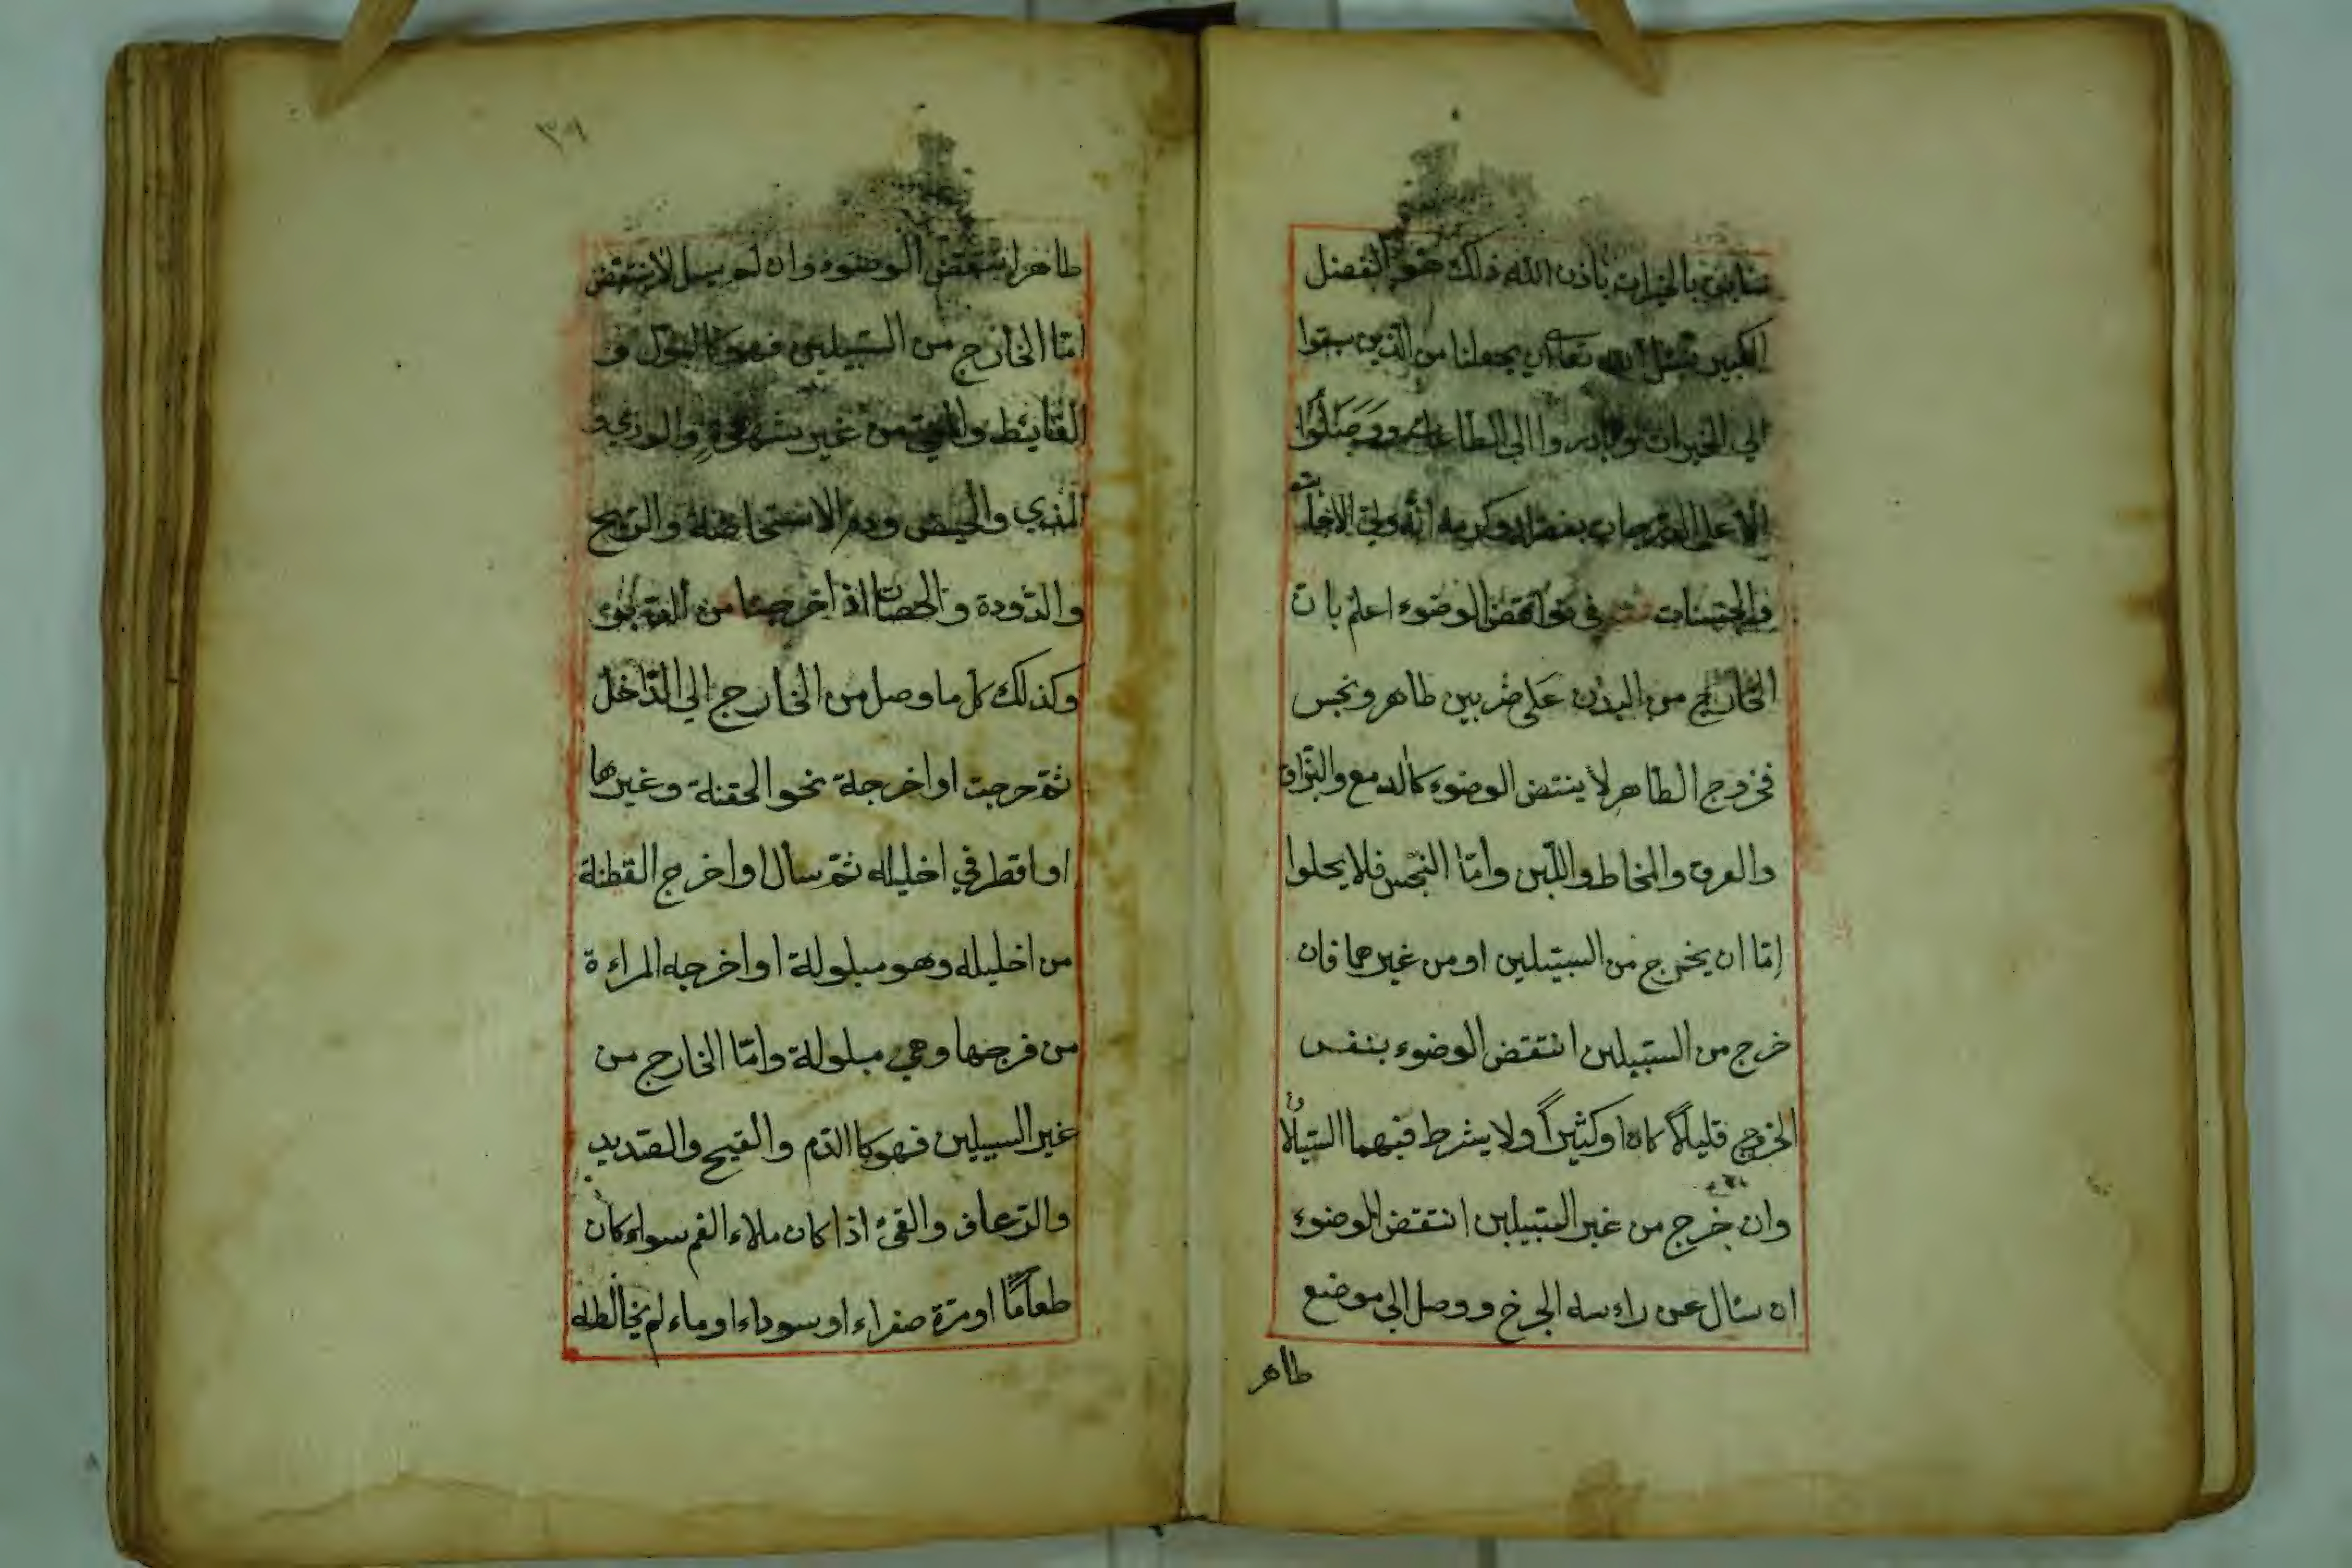 سابق بالخيرات باذن الله ذلك هو الفضل
الكبير فنسئل الله تعالى ان يجعلنا من الذين سبقوا
الي الخيرات وبادروا الى الطاعات ووصلوا
الاعلى الدرجات بفضله وكرمه انه ولي الاجابت
والحسنات في نواقض الوضوء اعلم بان
الخارج من البدن على ضربين طاهر ونجس
فخروج الطاهر لا ينتقض الوضوء كالدمع والبزاق
والعرق والمخاط واللبن وامّا النجس فلا يحلوا
إمّا ان يخرج من السبيلين او من غيرهما فان
خرج من السبيلين انتقض الوضوء بنفس
الخروج قليلاً كان او كثيراً ولا يشرط فيهما السيلان
وان خرج من غير السبيلين انتقض الوضوء
ان سال عن راءسه الجرخ ووصل الى موضع
طاهر
٣٩
طاهر انتقض الوضوء وان لم يسل لا ينتقض
امّا الخارج من السبيلين فهو كالبول و
الغايط والمني من غير شهوة والودي و
المذي والحيض ودم الاستحاضة والريح
والدّودة والحصاة اذا خرجتا من
وكذلك كل ما وصل من الخارج الي الدّاخل
ثمّ خرجت او اخرجة نحو الحقنة وغيرها
او اقطر في اخليله ثمّ سال او اخرج القطنة
من اخليله وهو مبلولة او اخرجه المراءة
من فرجها وهي مبلولة وامّا الخارج من
غير السبيلين فهو كا الدّم والقيح والصّديد
والرّعاف والقئ اذا كان ملاء الفم سواء كان
طعاماً او مرّة صفراء او سوداء او ماء لم يخالطه